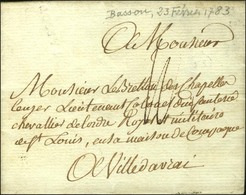 Basson, 23 Février 1783
A Monsieur
Monsieur Le Breton des Chapelles
ancien Lieutenant Colonel d'infanterie
chevalier de l'ordre Royal et militaire
de St Louis, en sa maison de campagne
A Villedavrai